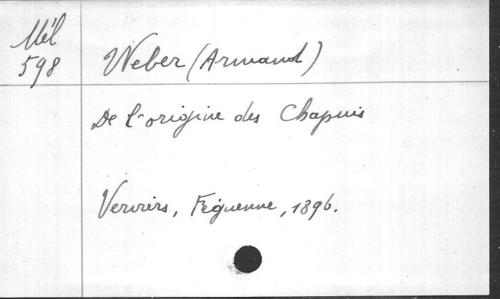 Mél
598
Weber (Armand)
De l'origine des Chapuis
Verviers, Féguenne, 1896.